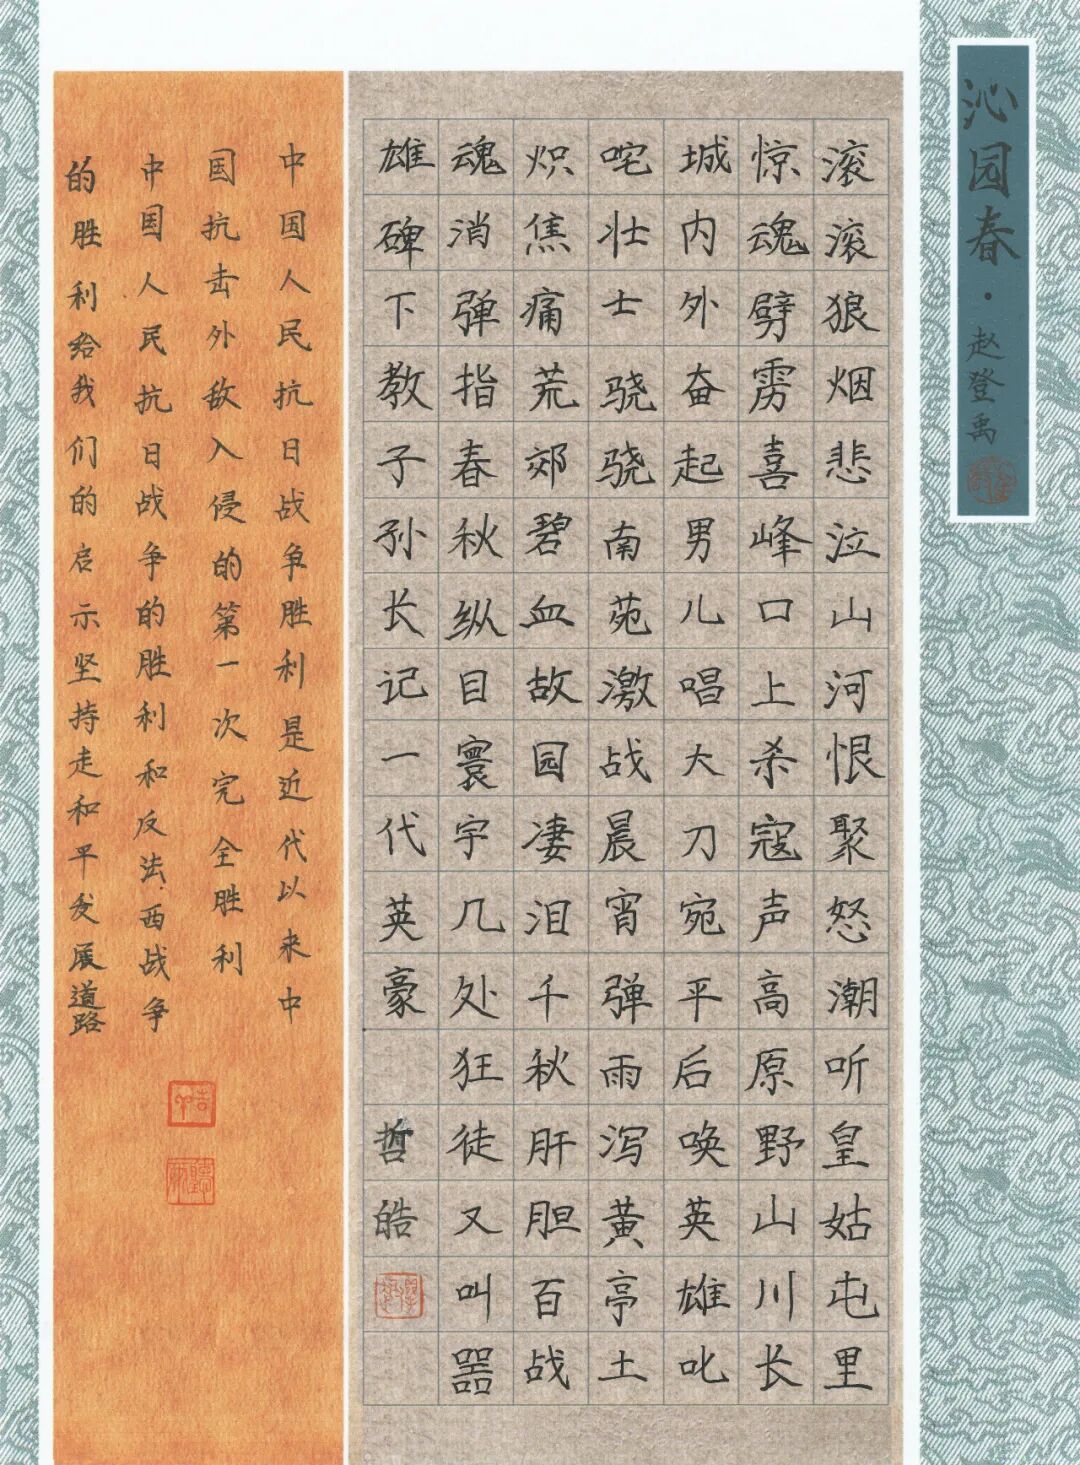 沁园春·赵登禹
滚滚狼烟悲泣山河恨聚怒潮听皇姑屯里
惊魂劈雳喜峰口上杀寇声高原野山川长
城内外奋起男儿唱大刀宛平后唤英雄叱
咤壮士骁骁南苑激战晨宵弹雨泻黄亭土
炽焦痛荒郊碧血故园凄泪千秋肝胆百战
魂消弹指春秋纵目寰宇几处狂徒又叫嚣
雄碑下教子孙长记一代英豪 哲皓
中国人民抗日战争胜利是近代以来中
国抗击外敌入侵的第一次完全胜利
中国人民抗日战争的胜利和反法西战争
的胜利给我们的启示坚持走和平发展道路